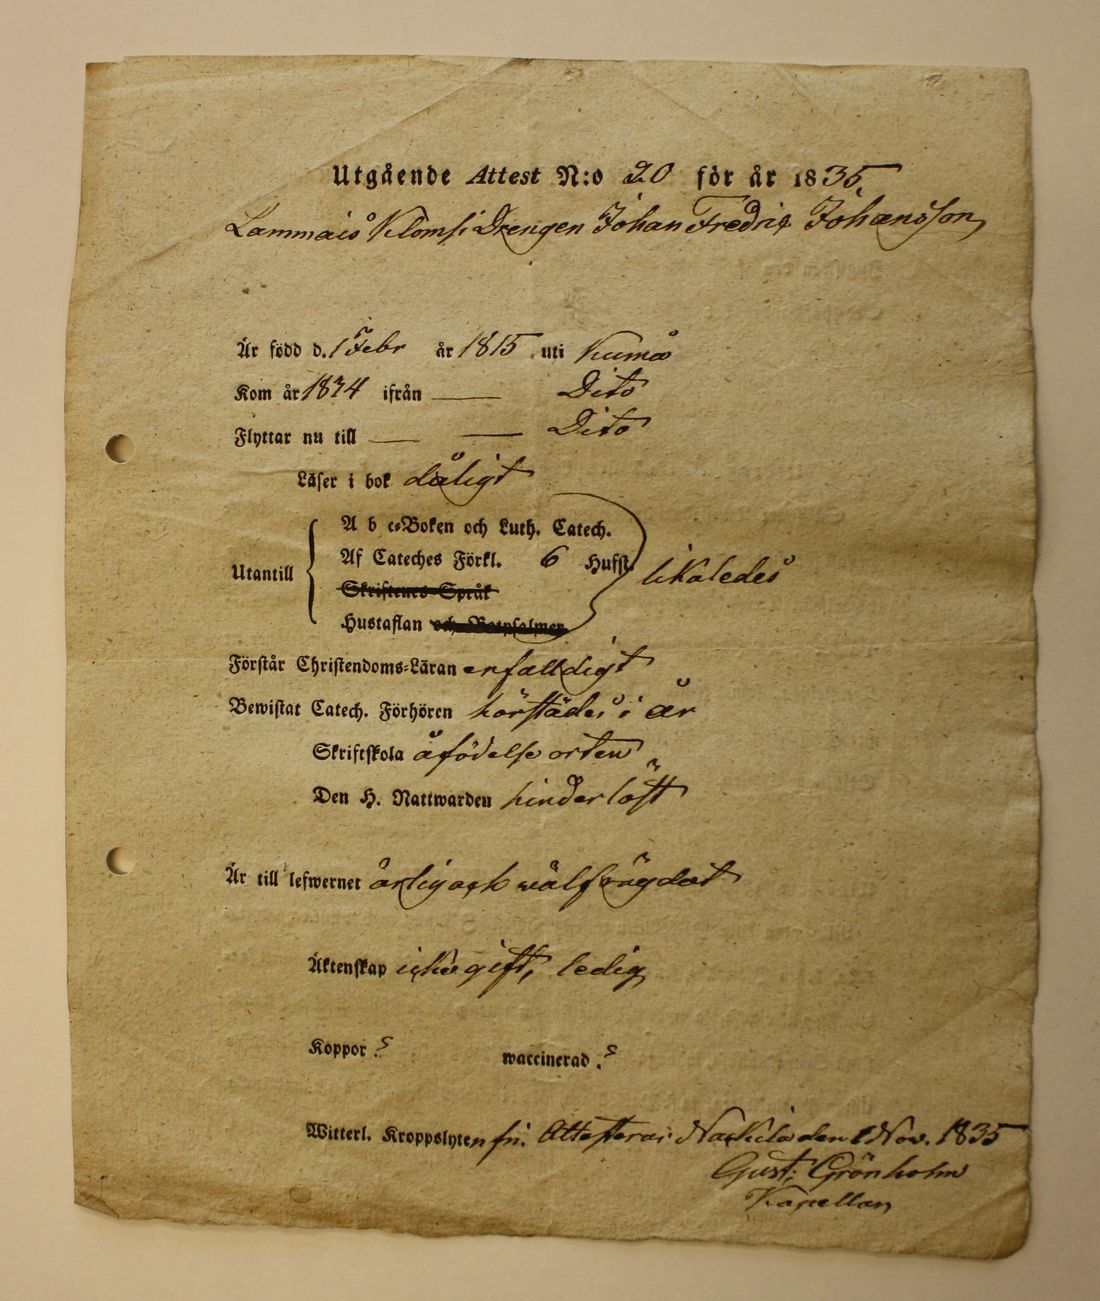 Utgående Attest N:o 20 för år 1835.
Drengen Johan Fredric Johansson
Är född d. 1 Febr år 1815 uti Kumo
Kom år 1834 ifrån — Dito
Flyttar nu till — — Dito
Läser i bok dåligt
A b c-Boken och Luth. Catech.
Af Cateches Förkl. 6 Hufst.
Utantill likaledes
Skriftenes Språk
Hustaflan och Botpsalmer
Förstår Christendoms-Läran enfalldigt
Bewistat Catech. Förhören härstädes i år
Skriftskola å födelse orten
Den H. Nattwarden hinderlöst
Är till lefwernet ärlig och wälfrägdat
Äktenskap icke gift, ledig
Koppor ? waccinerad ?
Witterl. Kroppslyten fri. Attesterar Nackila den 1 Nov. 1835
Gust: Grönholm
Kapellan